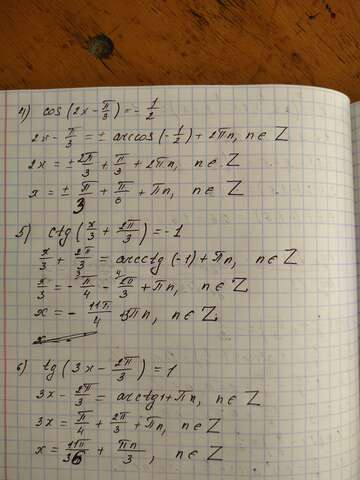 4) cos (2x - π/3) = - 1/2
2x - π/3 = ± arccos (- 1/2) + 2πn, n ∈ Z
2x = ± 2π/3 + π/3 + 2πn, n ∈ Z
x = ± π/3 + π/6 + πn, n ∈ Z
5) ctg (x/3 + 2π/3) = -1
x/3 + 2π/3 = arcctg (-1) + πn, n ∈ Z
x/3 = - π/4 - 2π/3 + πn, n ∈ Z
x = - 11π/4 + 3πn, n ∈ Z
6) tg (3x - 2π/3) = 1
3x - 2π/3 = arctg 1 + πn, n ∈ Z
3x = π/4 + 2π/3 + πn, n ∈ Z
x = 11π/36 + πn/3, n ∈ Z